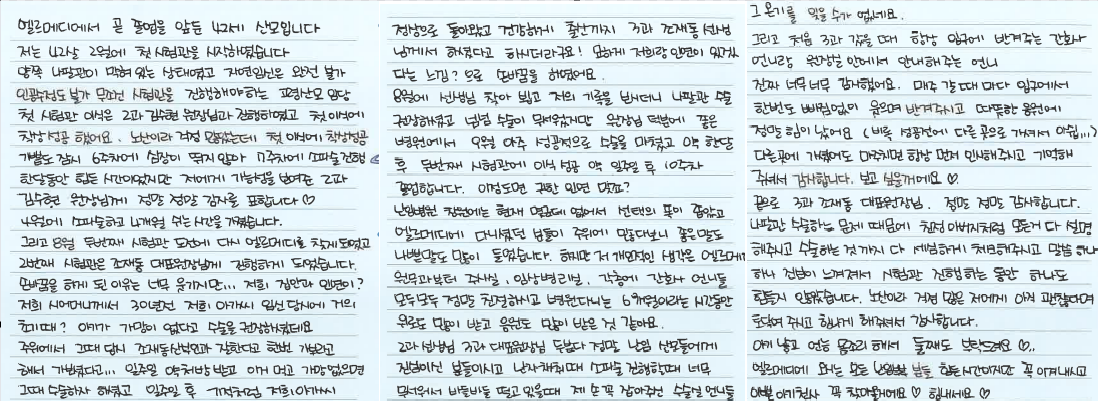 엘르메디에서 곧 졸업을 앞둔 42세 산모입니다
저는 42살 2월에 첫 시험관을 시작하였습니다
양쪽 나팔관이 막혀 있는 상태였고 자연임신은 완전 불가
인공수정도 불가 무조건 시험관을 진행해야하는 고령산모 였답
첫 시험관 이식은 2과 김수현 원장님과 진행하였고 첫 이식에
착상성공 했어요. 노산이라 걱정 많았는데 첫 이식에 착상성공
기쁨도 잠시 6주차에 심장이 뛰지 않아 7주차에 소파술진행
한달동안 힘든 시간이었지만 저에게 가능성을 보여준 2과
김수현 원장님께 정말 정말 감사를 표합니다♡
4월에 소파술하고 4개월 쉬는 시간을 가졌습니다.
그리고 8월 두번째 시험관 도전에 다시 엘르메디를 찾게되었고
2번째 시험관은 조재동 대표원장님께 진행하게 되었습니다.
선생님을 하게 된 이유는 너무 웃기지만... 저희 집안과 인연이?
저희 시어머니께서 30년전 저희 아가씨 임신 당시에 거의
초기때? 아기가 가망이 없다고 수술을 권장하셨데요
주위에서 그때 당시 조재동산부인과 잘한다고 한번 가보라고
해서 가봤더니... 일주일 약처방 받고 이거 먹고 가망없으면
그때 수술하자 하셨고 일주일 후 기적처럼 저희아가씨
정상으로 돌아왔고 건강하게 출산까지 3과 조재동 선생
님께서 하셨다고 하시더라구요! 묘하게 저희랑 인연이 있겠
다는 느낌? 으로 선생님을 하였어요.
8월에 선생님 찾아 뵙고 저의 기록을 보시더니 나팔관 수술
권장하셨고 넘넘 수술이 무서웠지만 원장님 덕분에 좋은
병원에서 오월 아주 성공적으로 수술을 마쳤고 약 한달
후 두번째 시험관에 이식 성공 약 일주일 후 10주차
졸업합니다. 이정도면 귀한 인연 맞죠?
난임병원 창원에는 현재 몇군데 없어서 선택의 폭이 좁았고
엘르메디에 다니셨던 분들이 주위에 많다보니 좋은말도
나쁜말도 많이 들었습니다. 하지만 저 개인적인 생각은 엘르메디에
원무과부터 주사실, 임상병리실, 각층에 간호사 언니들
모두모두 정말 친절하시고 병원다니는 6개월이라는 시간동안
위로도 많이 받고 응원도 많이 받은 것 같아요.
2과 선생님 3과 대표원장님 두분다 정말 난임 산모들에게
진심이신 분들이시고 난자채취때 소파술 진행할때 너무
무서워서 바들바들 떨고 있을때 제 손 꼭 잡아주신 수술실 언니들
그 온기를 잊을 수가 없네요.
그리고 처음 3과 갔을 때 항상 입구에 반겨주는 간호사
언니랑 원장실 안에서 안내해주는 언니
진짜 너무너무 감사했어요. 매주 갈 때 마다 입구에서
한번도 빠짐없이 웃으며 반겨주시고 따뜻한 응원에
정말 힘이 났어요 (비록 성공전에 다른 곳으로 가셔서 아쉽...)
다른곳에 가셨어도 마주치면 항상 먼저 인사해주시고 기억해
주셔서 감사합니다. 보고 싶을꺼에요♡.
끝으로 3과 조재동 대표원장님. 정말 정말 감사합니다.
나팔관 수술하는 문제 때문에 친정 아버지처럼 모든거 다 설명
해주시고 수술하는 것까지 다 세밀하게 체크해주시고 말씀 하나
하나 진심이 느껴져서 시험관 진행하는 동안 하나도
힘들지 않았습니다. 노산이라 걱정 많은 저에게 아직 괜찮다며
토닥여 주시고 힘나게 해주셔서 감사합니다.
아기 낳고 얼른 몸조리 해서 둘째도 부탁드려요♡.
엘르메디에 오시는 모든 난임부부 분들 힘든시간이지만 꼭 이겨내시고
이쁜 아기천사 꼭 찾아올거에요♡ 힘내세요♡